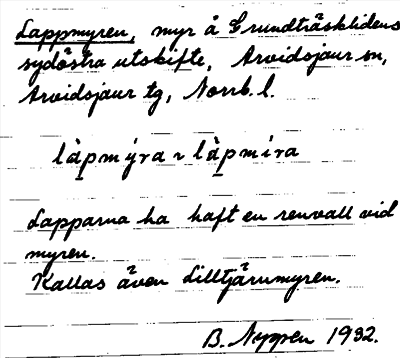 Lappmyren, myr å Grundträsklidens
sydöstra utskifte, Arvidsjaur sn,
Arvidsjaur tg, Norrb. l.
làpmýra ~ làpmíra
Lapparna ha haft en renvall vid
myren.
Kallas även Lilltjärnmyren.
B. Nygren 1932.